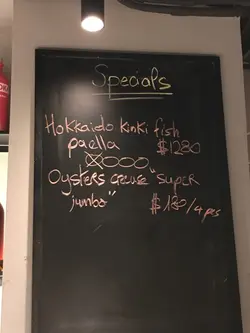 Specials
Hokkaido kinki fish
paella $1280
Oysters creuse "super
jumbo" $180/4pcs